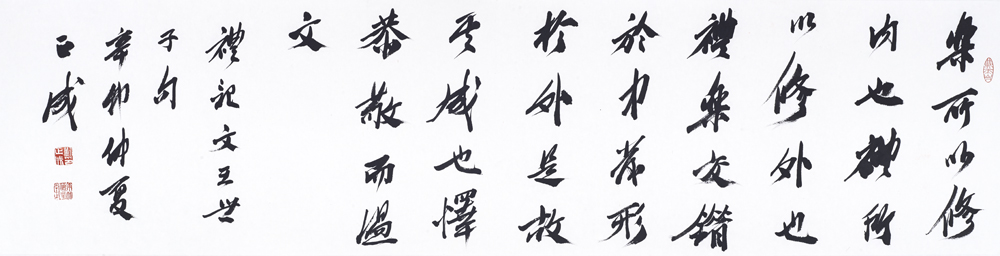 樂所以修
内也禮所
以修外也
禮樂交錯
於中發形
於外是故
其成也懌
恭敬而温
文
禮記文王世
子句
辛卯仲夏
正成